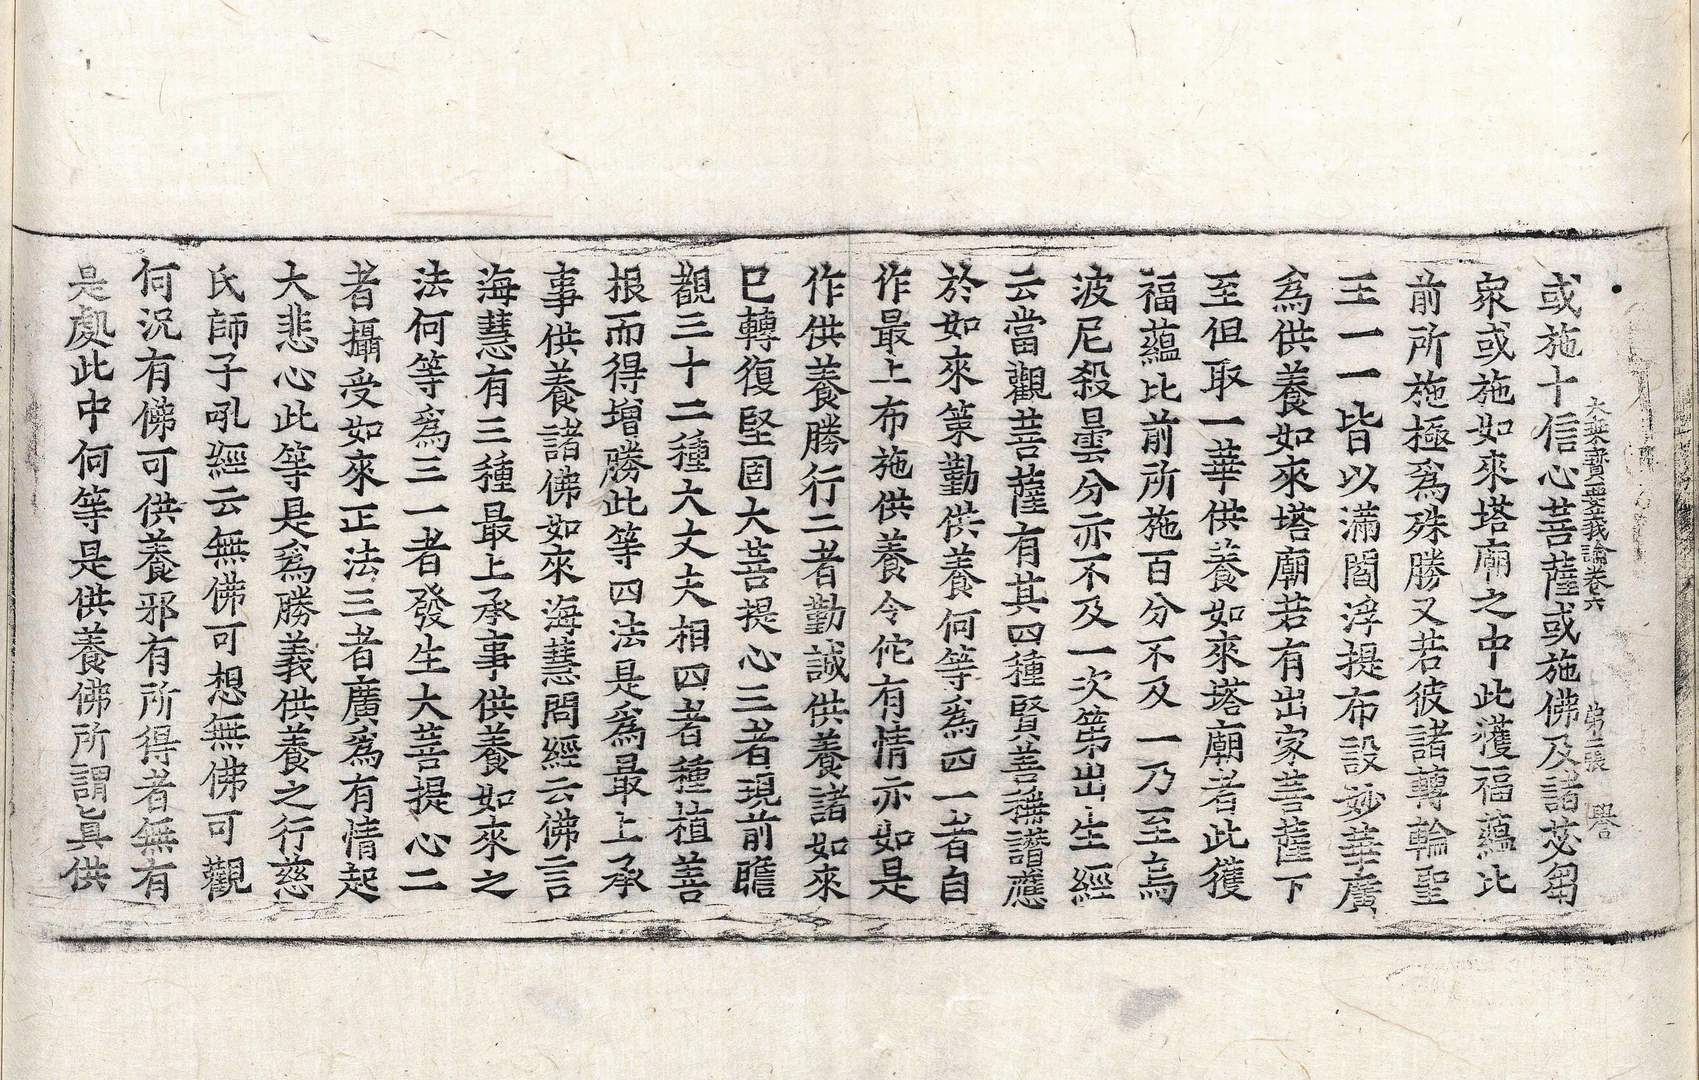 大乘寶要義論卷六 第二張 譽
或施十信心菩薩或施佛及諸苾芻
衆或施如來塔廟之中此獲福蘊比
前所施極爲殊勝又若彼諸轉輪聖
王一一皆以滿閻浮提布設妙華廣
爲供養如來塔廟若有出家菩薩下
至但取一華供養如來塔廟者此獲
福蘊比前所施百分不及一乃至烏
波尼殺曇分亦不及一次第出生經
云當觀菩薩有其四種賢善稱讚應
於如來策勤供養何等爲四一者自
作最上布施供養令佗有情亦如是
作供養勝行二者勤誠供養諸如來
已轉復堅固大菩提心三者現前瞻
覩三十二種大丈夫相四者種植善
根而得增勝此等四法是爲最上承
事供養諸佛如來海慧問經云佛言
海慧有三種最上承事供養如來之
法何等爲三一者發生大菩提心二
者攝受如來正法三者廣爲有情起
大悲心此等是爲勝義供養之行慈
氏師子吼經云無佛可想無佛可觀
何況有佛可供養邪有所得者無有
是處此中何等是供養佛所謂眞供